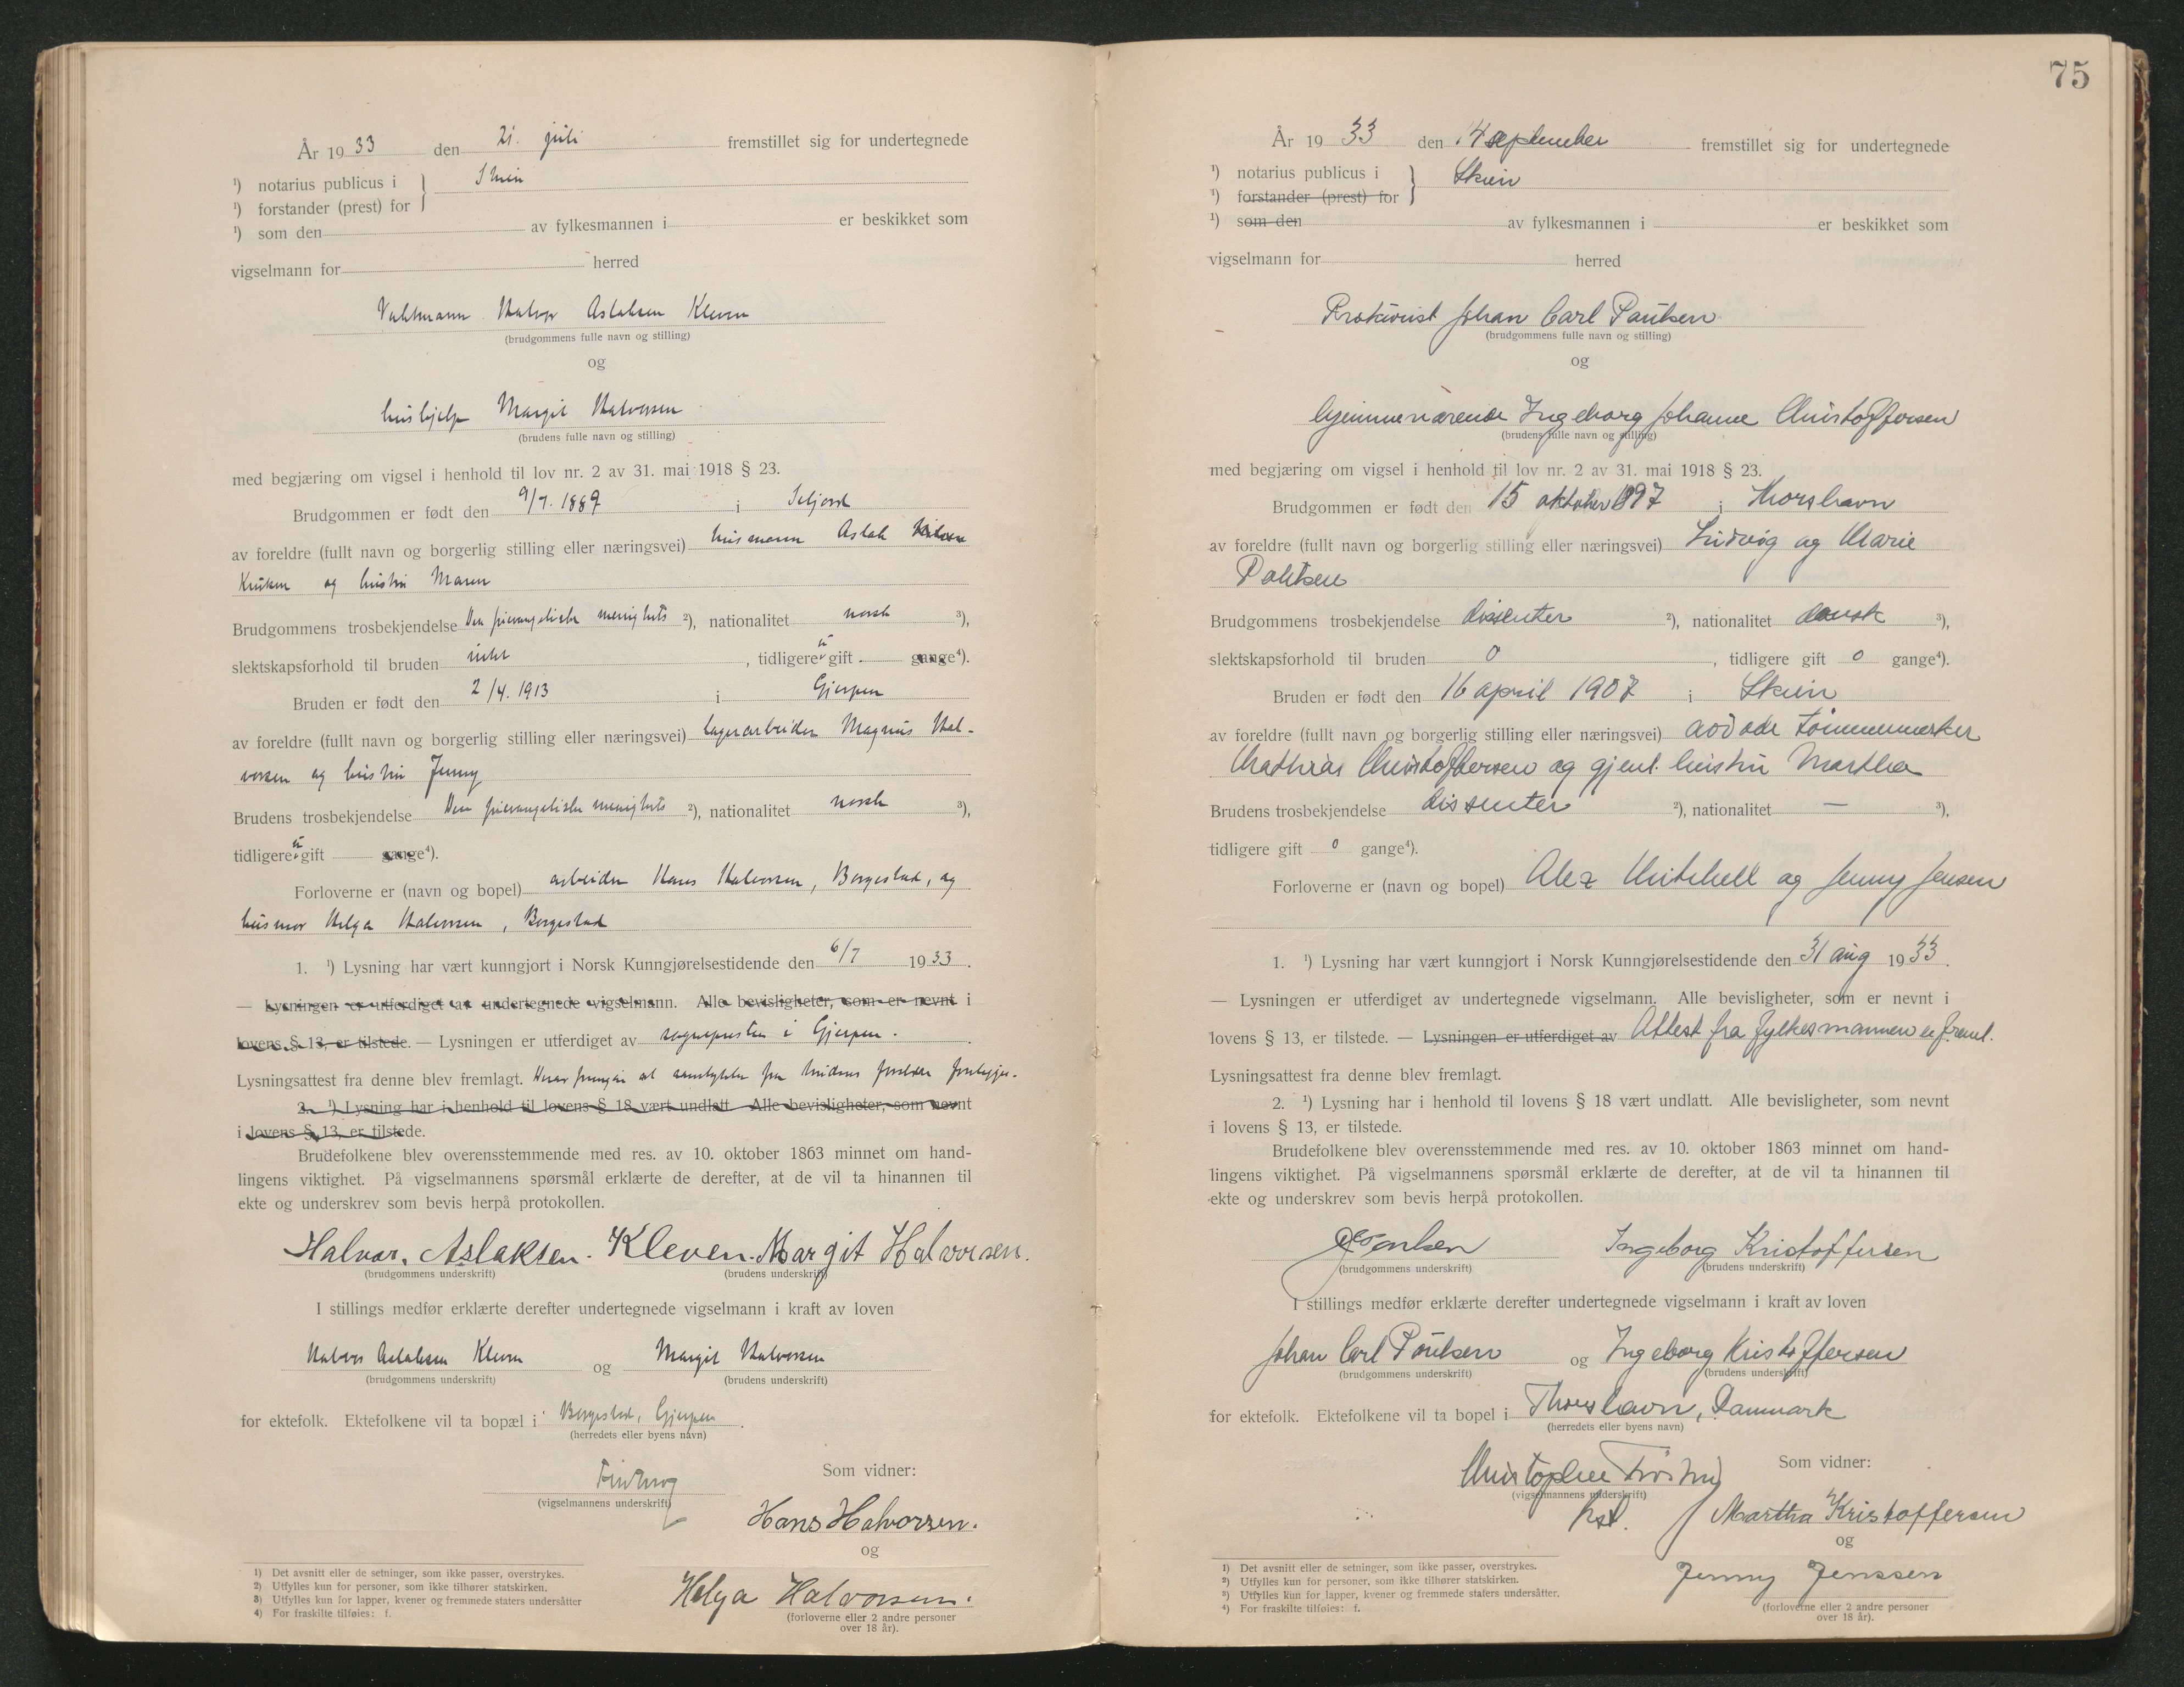 År 1933 den 21. juli fremstillet sig for undertegnede
¹) notarius publicus i } Skien
¹) forstander (prest) for
¹) som den av fylkesmannen i er beskikket som
vigselmann for herred
Vaktmann Halvor Aslaksen Kleven
(brudgommens fulle navn og stilling)
og
hushjelp Margit Halvorsen
(brudens fulle navn og stilling)
med begjæring om vigsel i henhold til lov nr. 2 av 31. mai 1918 § 23.
Brudgommen er født den 9/7. 1889 i Seljord
av foreldre (fullt navn og borgerlig stilling eller næringsvei) husmann Aslak
og hustru Maren
Brudgommens trosbekjendelse Den frievangeliske menighets ²), nationalitet norsk ³),
slektskapsforhold til bruden intet, tidligere ei gift gange⁴).
Bruden er født den 2/4. 1913 i Gjerpen
av foreldre (fullt navn og borgerlig stilling eller næringsvei) lagerarbeider Magnus Hal-
vorsen og hustru Jenny
Brudens trosbekjendelse Den frievangeliske menighets ²), nationalitet norsk ³),
tidligere ei gift gange⁴).
Forloverne er (navn og bopel) arbeider Hans Halvorsen, Borgestad, og
husmor Helga Halvorsen, Borgestad
1. ¹) Lysning har vært kunngjort i Norsk Kunngjørelsestidende den 6/7 1933.
— Lysningen er utferdiget av undertegnede vigselmann. Alle bevisligheter, som er nevnt i
lovens § 13, er tilstede. — Lysningen er utferdiget av sognepresten i Gjerpen.
Lysningsattest fra denne blev fremlagt. Herav fremgår at samtykke fra brudens foreldre foreligger.
2. ¹) Lysning har i henhold til lovens § 18 vært undlatt. Alle bevisligheter, som nevnt
i lovens § 13, er tilstede.
Brudefolkene blev overensstemmende med res. av 10. oktober 1863 minnet om hand-
lingens viktighet. På vigselmannens spørsmål erklærte de derefter, at de vil ta hinannen til
ekte og underskrev som bevis herpå protokollen.
Halvor. Aslaksen. Kleven. Margit Halvorsen.
(brudgommens underskrift) (brudens underskrift)
I stillings medfør erklærte derefter undertegnede vigselmann i kraft av loven
Halvor Aslaksen Kleven og Margit Halvorsen
(brudgommens underskrift) (brudens underskrift)
for ektefolk. Ektefolkene vil ta bopæl i Borgestad, Gjerpen.
(herredets eller byens navn)
Som vidner:
(vigselmannens underskrift)
Hans Halvorsen.
og
Helga Halvorsen.
(forloverne eller 2 andre personer
over 18 år).
1) Det avsnitt eller de setninger, som ikke passer, overstrykes.
2) Utfylles kun for personer, som ikke tilhører statskirken.
3) Utfylles kun for lapper, kvener og fremmede staters undersåtter
4) For fraskilte tilføies: f.
75
År 1933 den 14 september fremstillet sig for undertegnede
¹) notarius publicus i } Skien
¹) forstander (prest) for
¹) som den av fylkesmannen i er beskikket som
vigselmann for herred
Prokurist Johan Carl Poulsen
(brudgommens fulle navn og stilling)
og
hjemmeværende Ingeborg Johanne Christoffersen
(brudens fulle navn og stilling)
med begjæring om vigsel i henhold til lov nr. 2 av 31. mai 1918 § 23.
Brudgommen er født den 15 oktober 1897 i Thorshavn
av foreldre (fullt navn og borgerlig stilling eller næringsvei) Ludvig og Marie
Poulsen
Brudgommens trosbekjendelse dissenter ²), nationalitet dansk ³),
slektskapsforhold til bruden 0, tidligere gift 0 gange⁴).
Bruden er født den 16 april 1907 i Skien
av foreldre (fullt navn og borgerlig stilling eller næringsvei) avdøde tømmermerker
Mathias Christoffersen og gjenl. hustru Martha
Brudens trosbekjendelse dissenter ²), nationalitet — ³),
tidligere gift 0 gange⁴).
Forloverne er (navn og bopel) Alex Mitchell og Jenny Jensen
1. ¹) Lysning har vært kunngjort i Norsk Kunngjørelsestidende den 31 aug 1933.
— Lysningen er utferdiget av undertegnede vigselmann. Alle bevisligheter, som er nevnt i
lovens § 13, er tilstede. — Lysningen er utferdiget av Attest fra fylkesmannen er freml.
Lysningsattest fra denne blev fremlagt.
2. ¹) Lysning har i henhold til lovens § 18 vært undlatt. Alle bevisligheter, som nevnt
i lovens § 13, er tilstede.
Brudefolkene blev overensstemmende med res. av 10. oktober 1863 minnet om hand-
lingens viktighet. På vigselmannens spørsmål erklærte de derefter, at de vil ta hinannen til
ekte og underskrev som bevis herpå protokollen.
Poulsen Ingeborg Kristoffersen
(brudgommens underskrift) (brudens underskrift)
I stillings medfør erklærte derefter undertegnede vigselmann i kraft av loven
Johan Carl Poulsen og Ingeborg Kristoffersen
(brudgommens underskrift) (brudens underskrift)
for ektefolk. Ektefolkene vil ta bopel i Thorshavn, Danmark
(herredets eller byens navn)
Christopher
Som vidner:
(vigselmannens underskrift)
kst. Martha Kristoffersen
og
Jenny Jenssen
(forloverne eller 2 andre personer
over 18 år).
¹) Det avsnitt eller de setninger, som ikke passer, overstrykes.
²) Utfylles kun for personer, som ikke tilhører statskirken.
³) Utfylles kun for lapper, kvener og fremmede staters undersåtter.
⁴) For fraskilte tilføies: f.